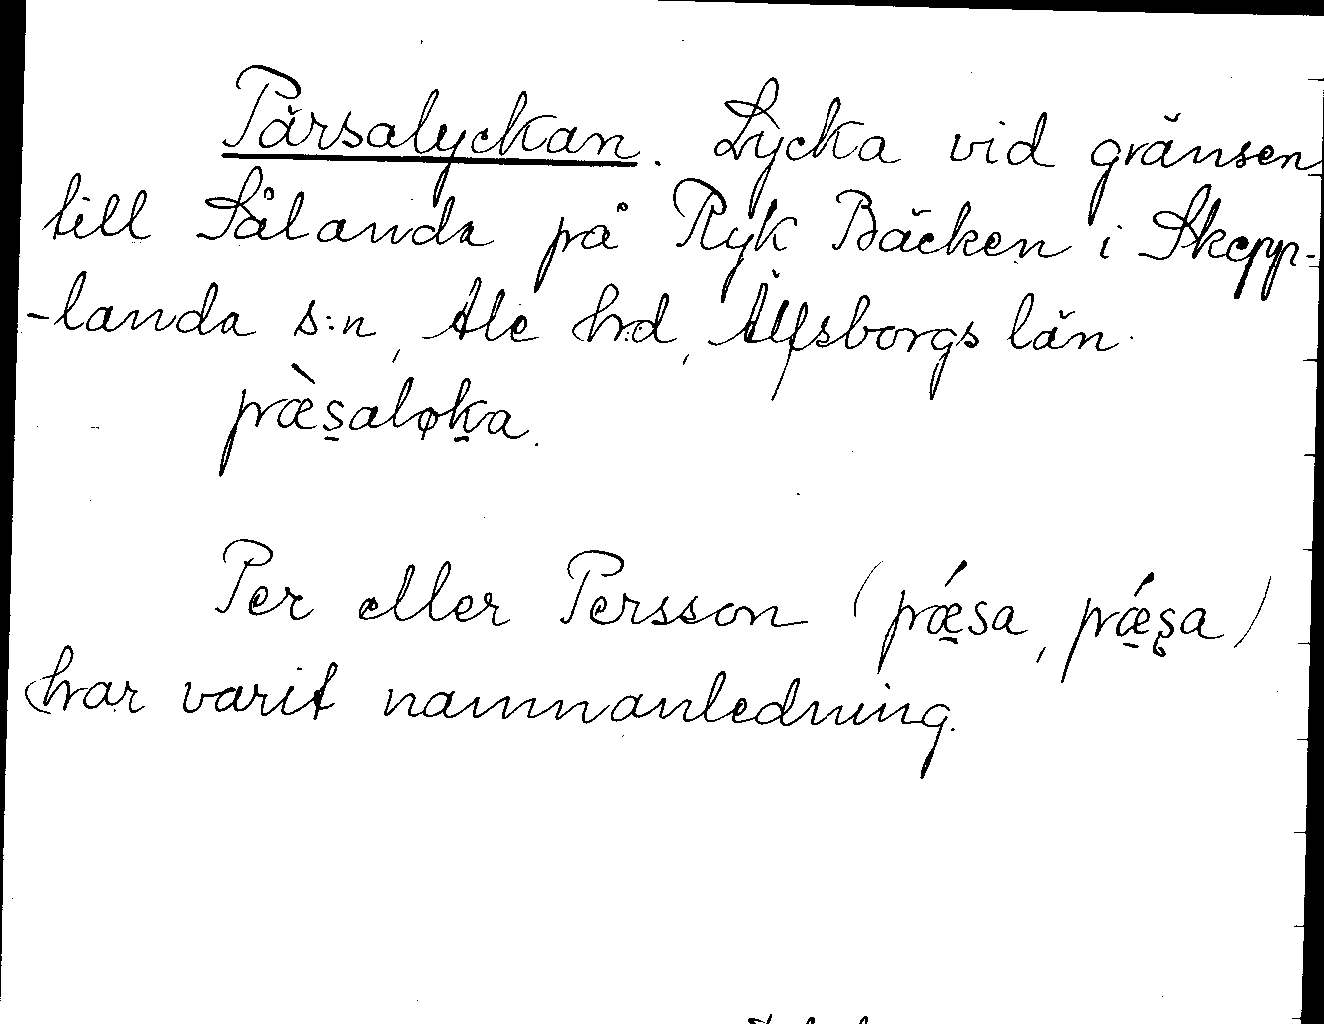 Pärsalyckan. Lycka vid gränsen
till Sålanda på Ryk Bäcken i Skepp-
-landa s:n, Ale hd, Älfsborgs län.
pæ̀s̱aløḵa.
Per eller Persson (pǽ̱sa, pǽ̱ʂa)
har varit namnanledning.